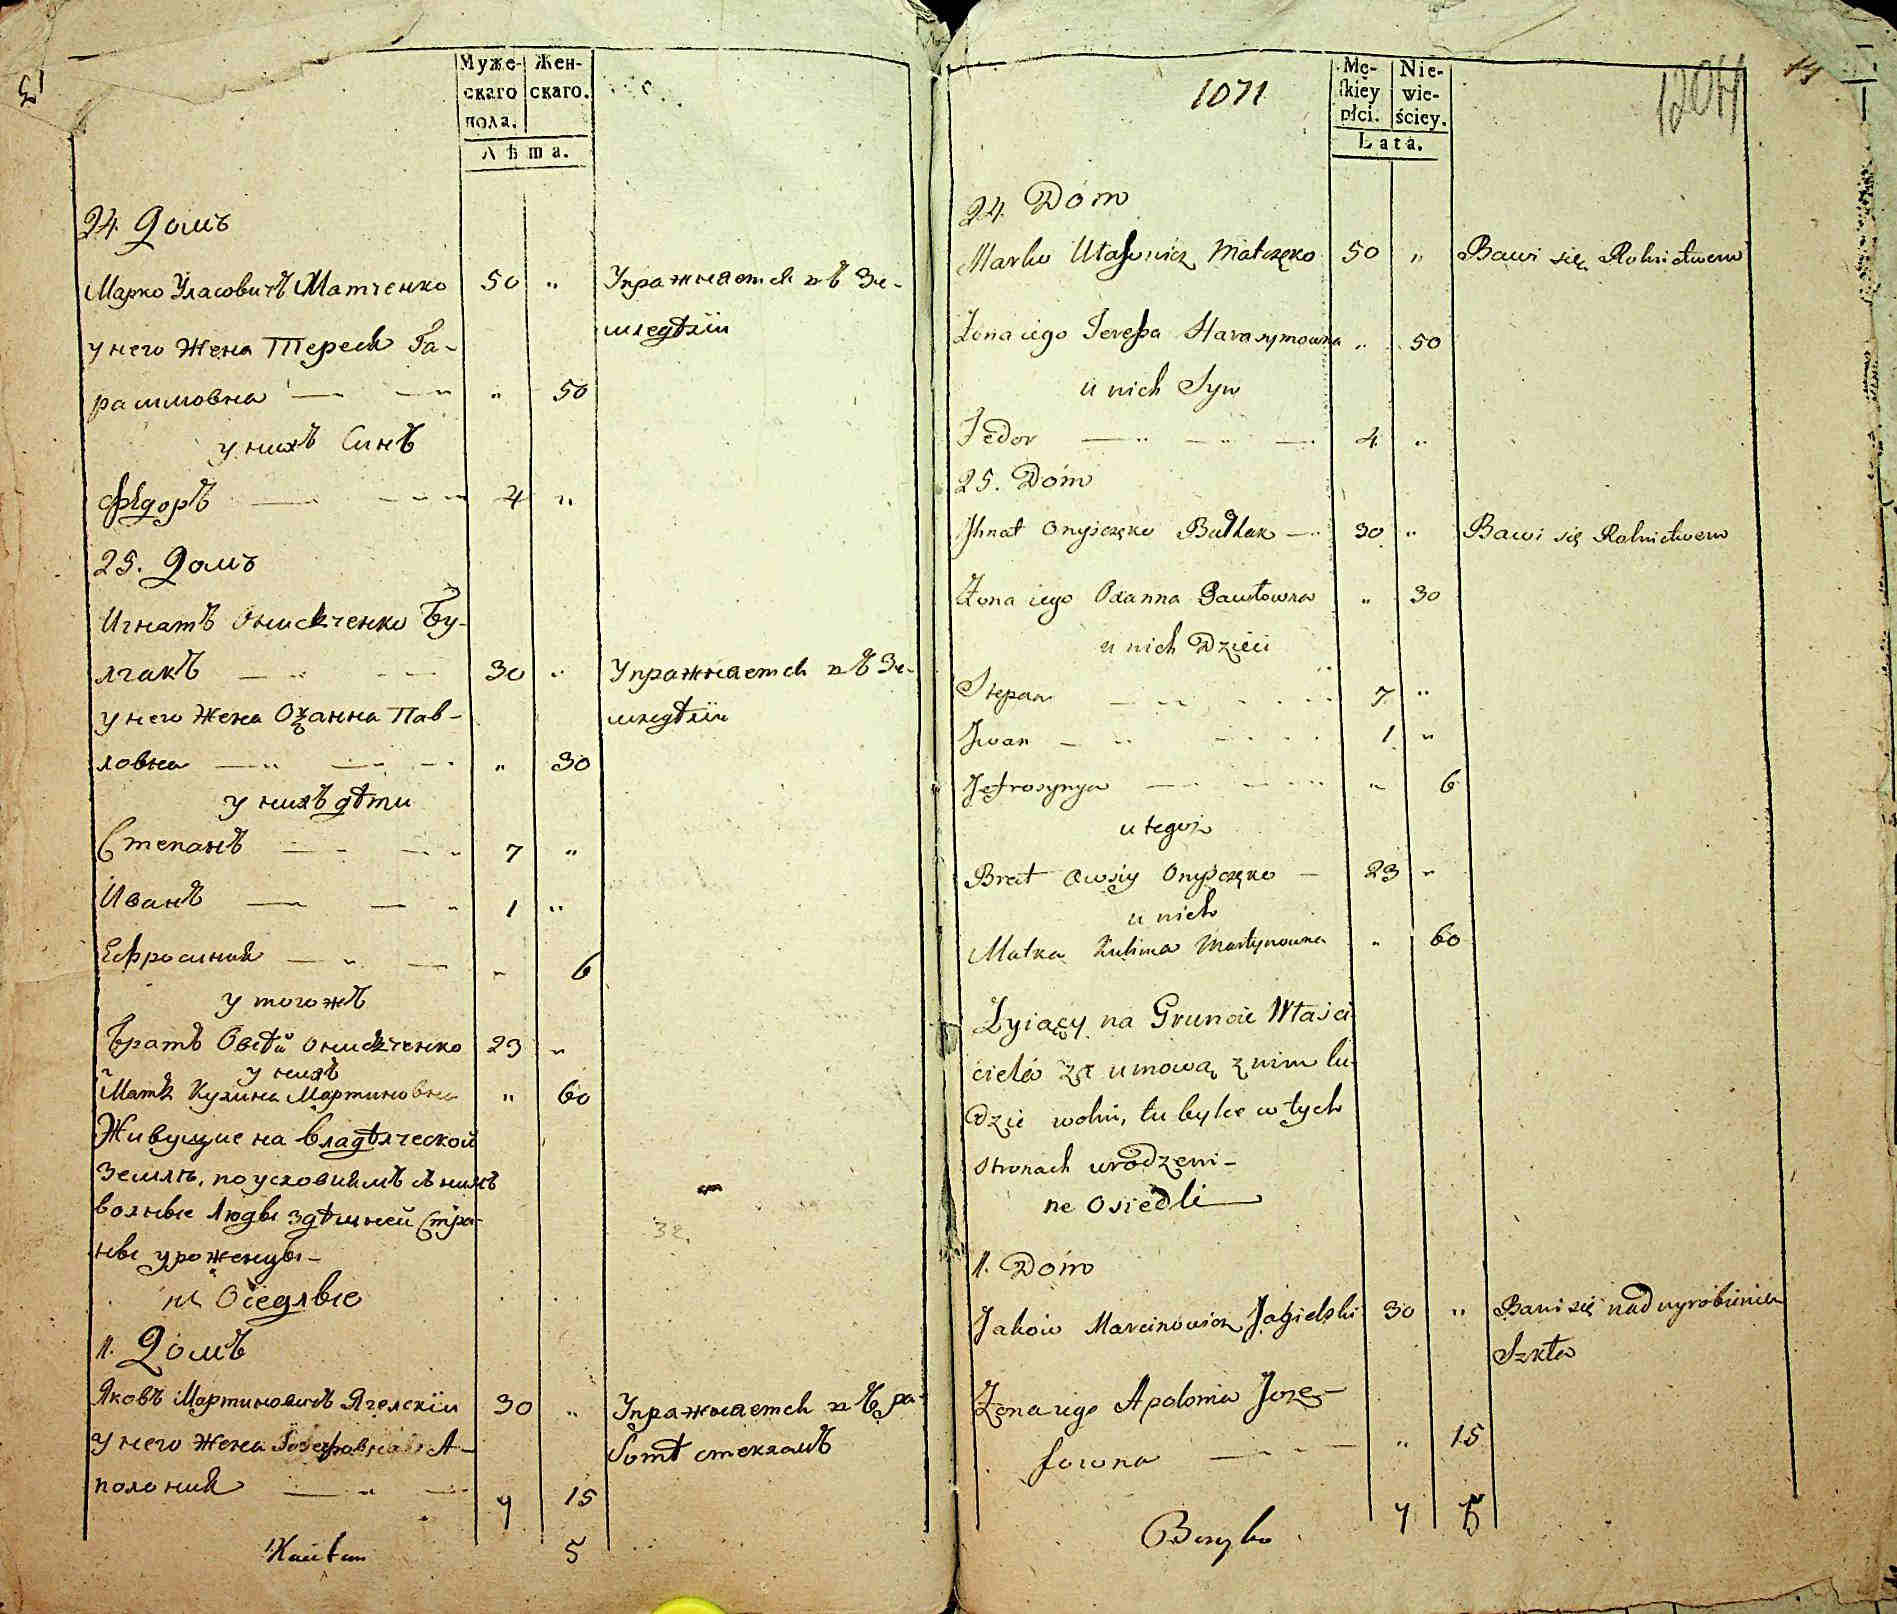 Муже-
скаго
пола.
Жен-
скаго.
Лѣта.
24 Домъ
Марко Уласовичъ Матченко 50 " Упражняется въ Зе-
мледѣлїи
у него Жена Тереся Га-
расимовна — — " 50
у нихъ Синъ
Фѣдоръ — — 4 "
25. Домъ
Игнатъ Онисѣченко Бу-
лгакъ — — 30 " Упражняется въ Зе-
у него Жена Оѯанна Пав- мледѣлїи
ловна — — " 30
у нихъ дѣти
Степанъ — — 7 "
Иванъ — — 1 "
Ефросиния — — " 6
у тогожъ
Братъ Овсѣй Онисѣченко 23 "
у нихъ
Матѣ Кулина Мартиновна " 60
Живущие на владѣлческой
Землѣ, по условиямъ съ нимъ
волные Люди здѣшней Стра-
ны уроженцы-
не Оседлые
1. Домъ
Яковъ Мартиновичъ Ягелскїи 30 " Упражняется въ ра-
у него Жена А- ботѣ стеклам
полония — " 15
4
5
1071
1204
14
Mę-
skiey
płci.
Nie-
wie-
ściey.
Lata.
24. Dóm
Marko Ułasowicz Matczęko 50 " Bawi się Rolnictwem
Żona iego Teressa Harasymowna " 50
u nich Syn
Fedor — — — 4 "
25. Dóm
Ihnat Onysczęko Bułhak — 30 " Bawi się Rolnictwem
Żona iego Oxanna Pawłowna " 30
u nich Dzieci
Stepan 7 "
Iwan — 1 "
Jefrosynya — " 6
u tegoż
Brat Owsiy Onysczęko — 23 "
u nich
Matka Kulina Martynowna " 60
Żyiący na Gruncie Właści
ciela za umową z nim lu
dzie wolni, tu bylce w tych
stronach urodzeni-
ne Osiedli
1. Dóm
Jakow Marcinowicz Jagielski 30 " Bawi się nad wyrobieniem
Szkła
Żona iego Apolonia Joze-
fowna — — " 15
4 5